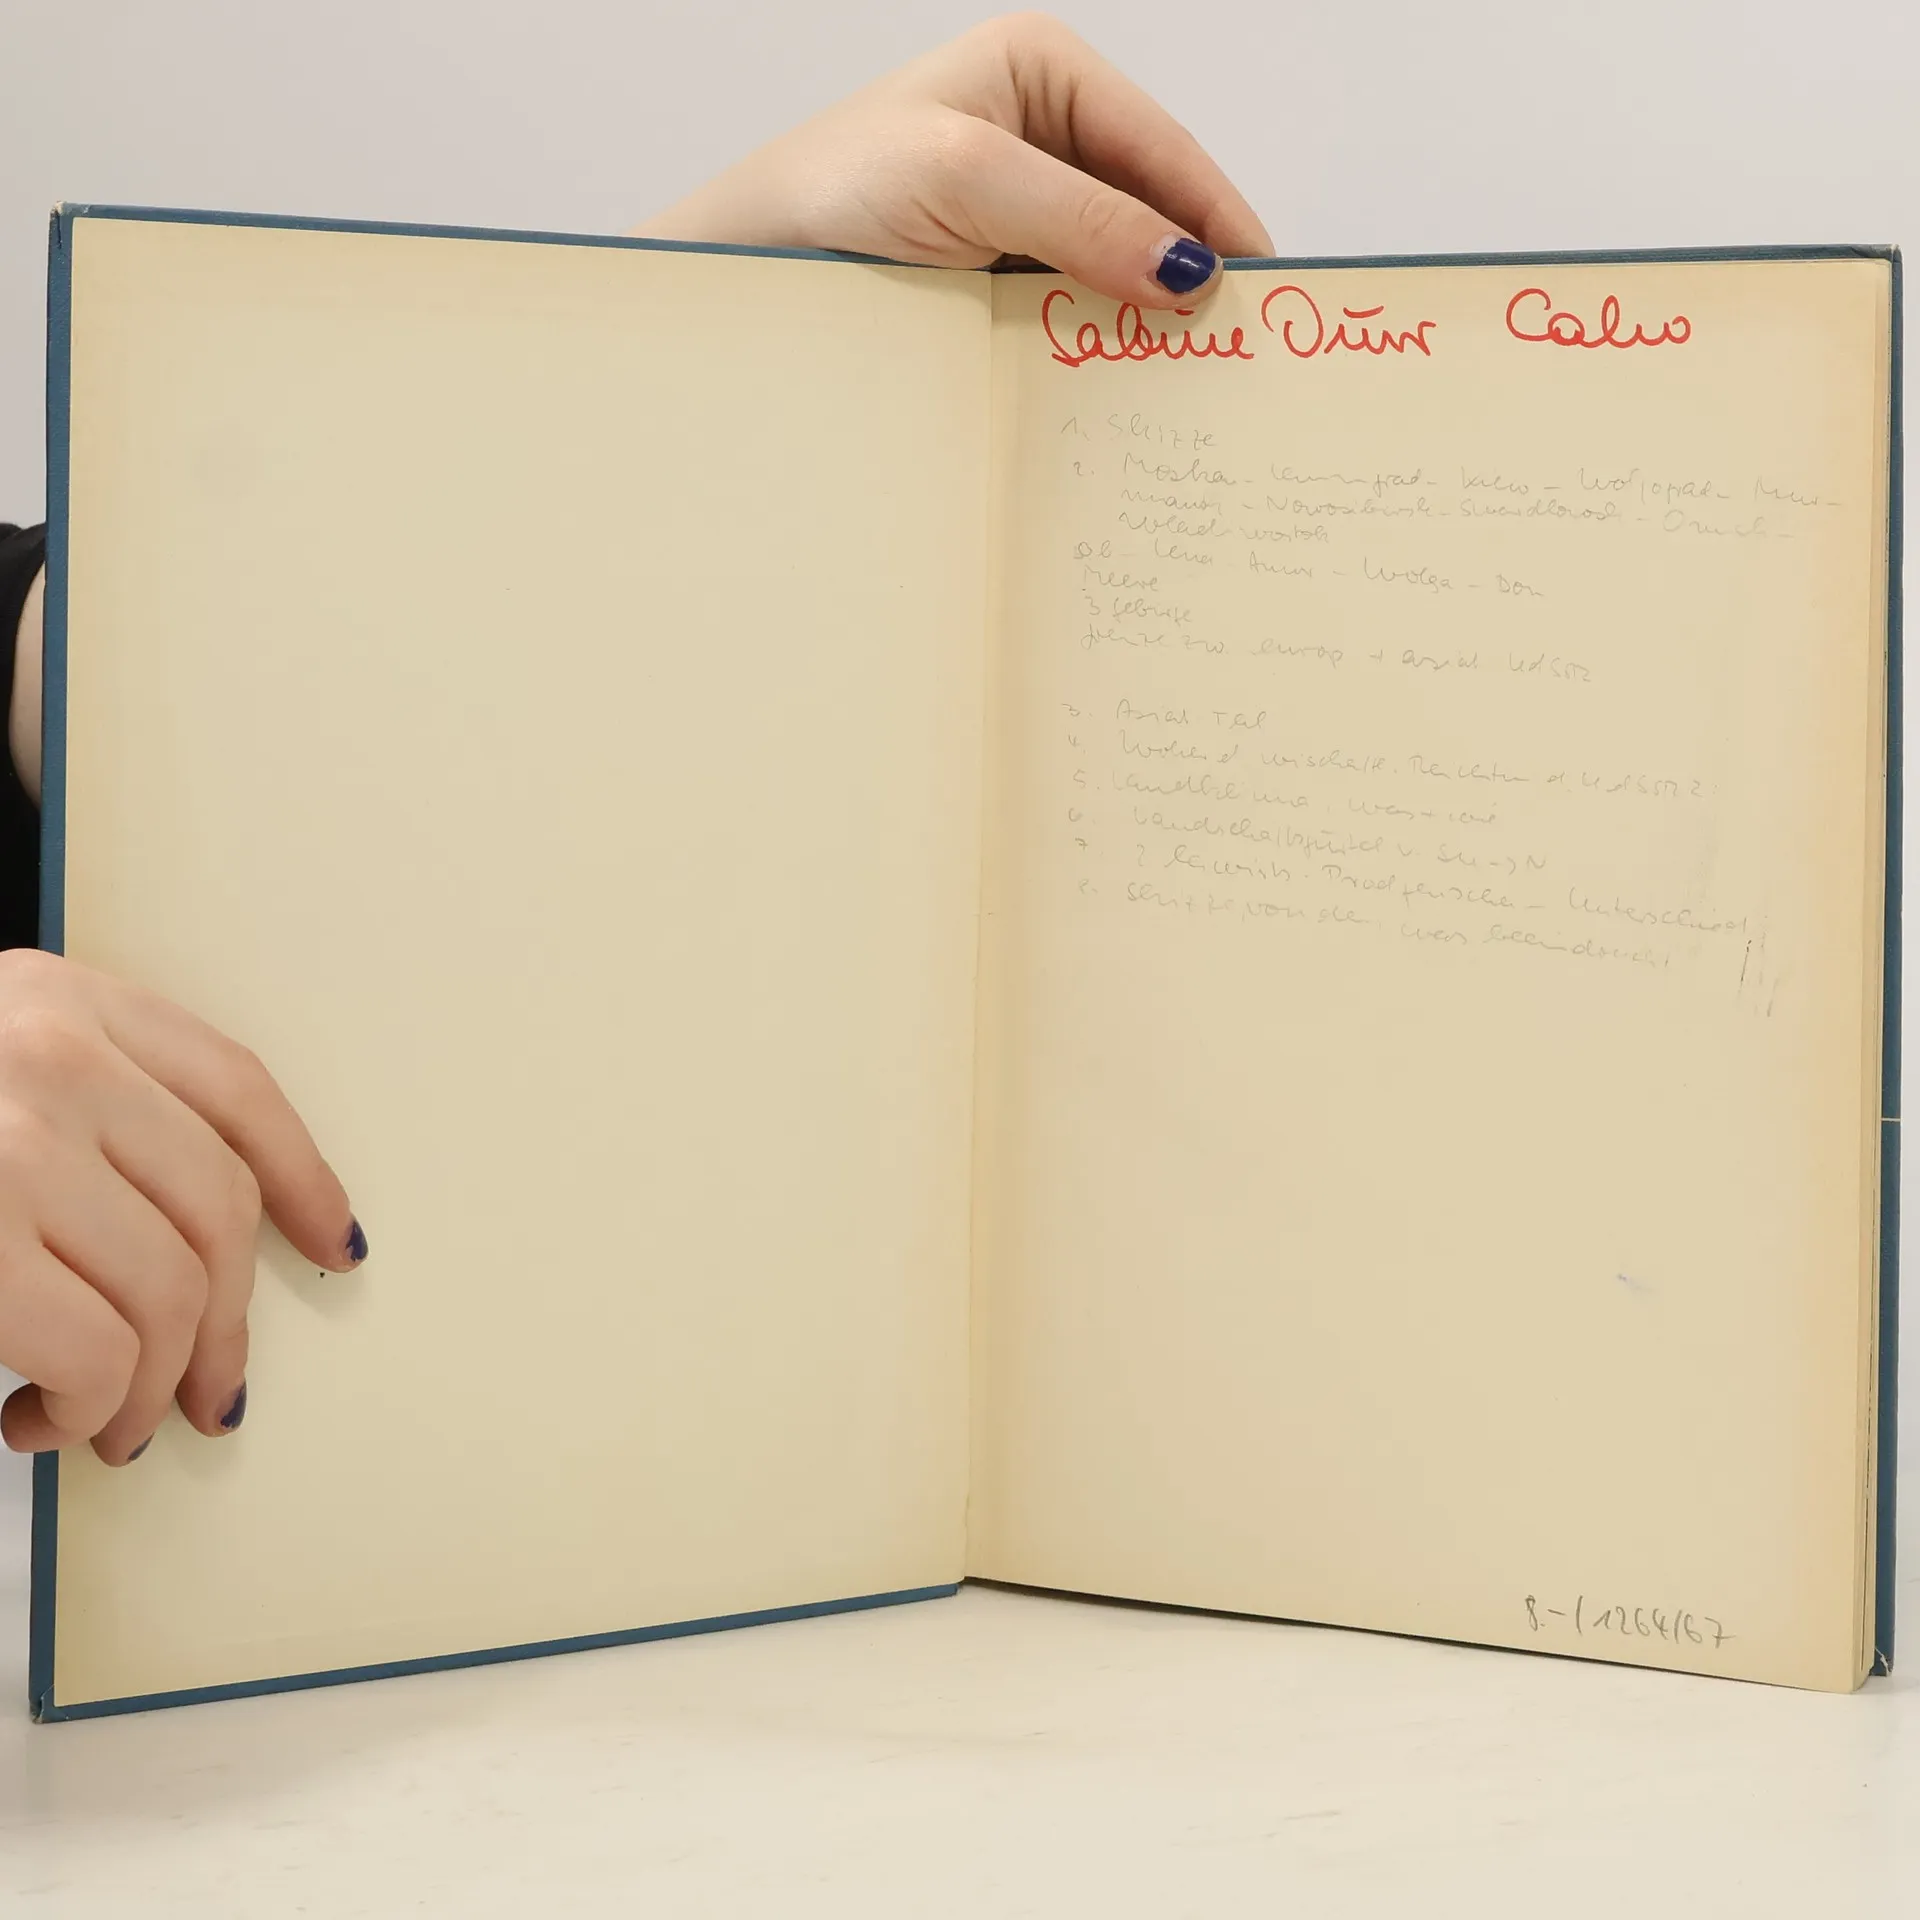 Sabine Dürr Calw
1. Skizze
2. Moskau - Leningrad - Kiew - Wolgograd - Mur-
mansk - Nowosibirsk - Swerdlowsk - Omsk -
Wladiwostok
Ob - Lena - Amur - Wolga - Don
Meere
3 Gebirge
Grenze zw. europ + asiat UdSSR
3. Asiat. Teil
4. Woher d wirschaftl. d. UdSSR?
5. was + wie
6. Landschaftsgürtel v. Sü -> N
7. 2 Unterschied
8. Skizze, von der, was beeindruckt
8.-/1264/67